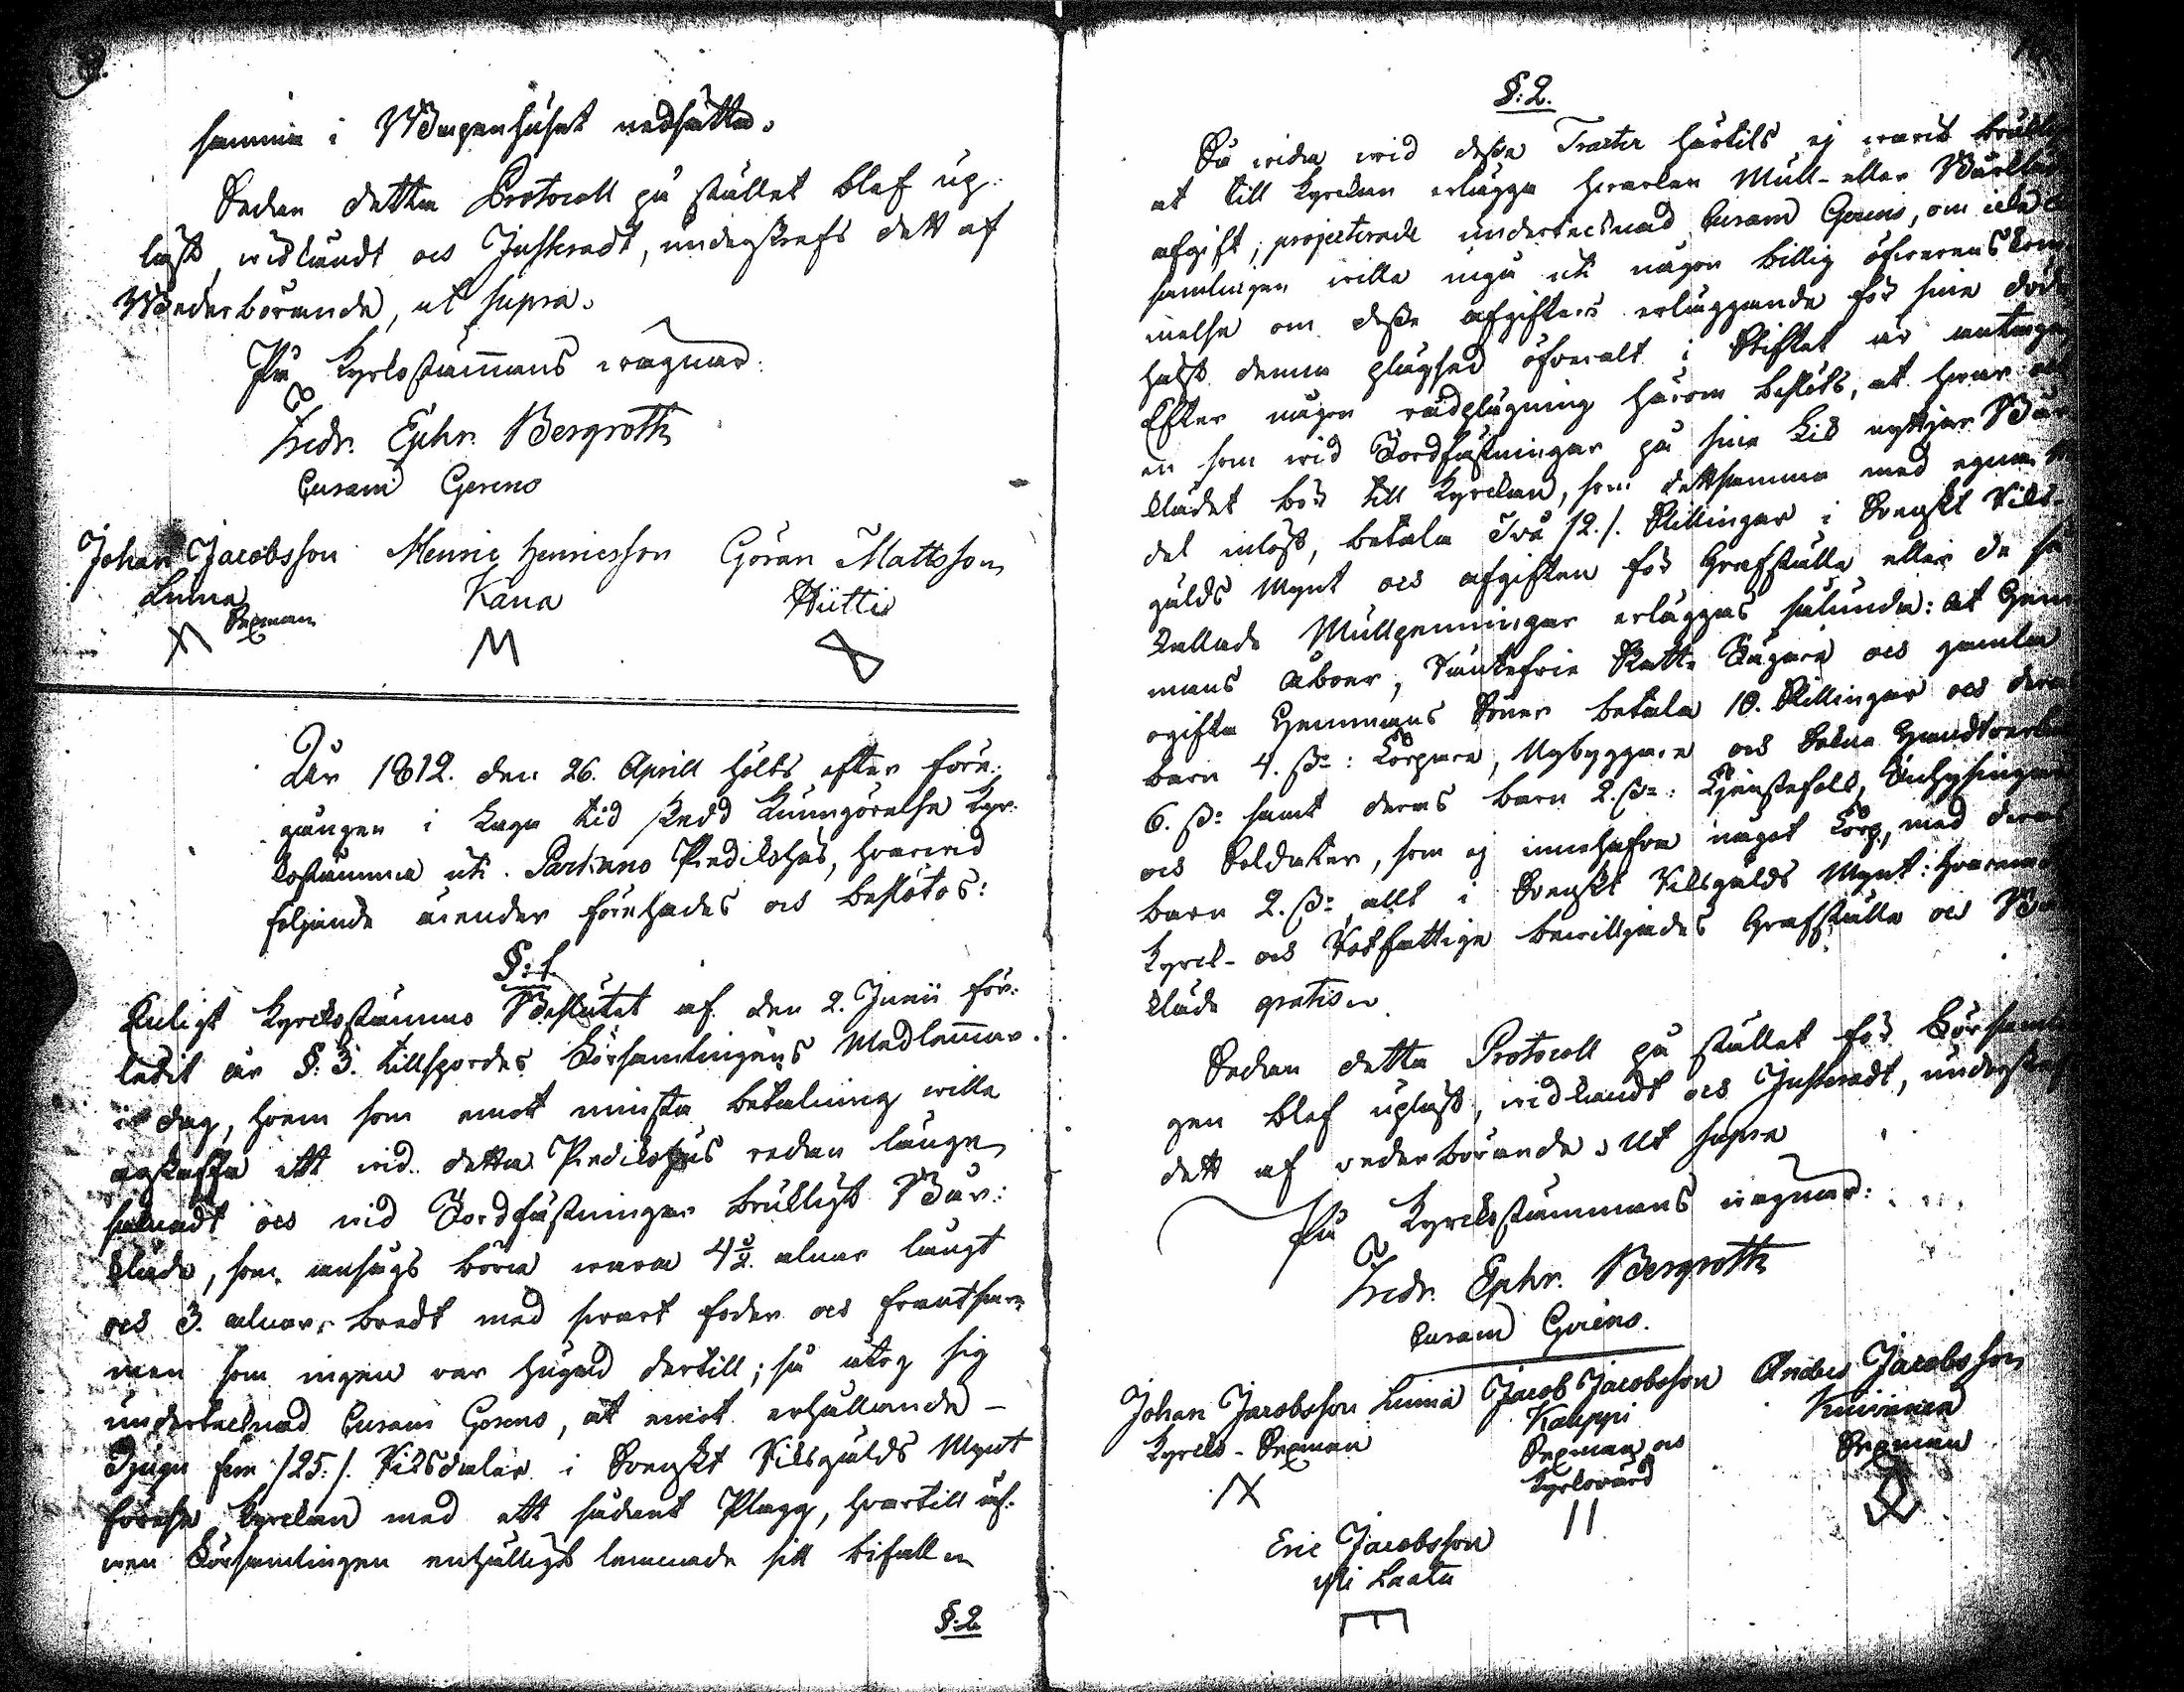 samma i Wapenhuset nedsätta.
Sedan detta Protocoll på stället blef up-
läst, widkändt och Justeradt, underskrefs dett af
Wederbörande, ut supra.
På Kyrkostämmans wägnar:
Fredr. Ephr. Bergroth
Curam Gerens
Johan Jacobsson Henric Henricsson Göran Mattsson
Luma Kana Hütti
Sexman
År 1812. den 26. Aprill hölts efter före-
gången i laga tid skedd Kungörelse Kyr-
kostämma uti Predikohus, hwarwid
följande ärender förehades och beslötos:
§: 1.
Enligt Kyrckostämmo Beslutet af den 2. Junii för-
ledit år §: 3. tillspordes Församlingens Medlemmar
i dag, hwem som emot minsta betalning wille
anskaffa ett wid detta Predikohus redan länge
saknadt och wid Jordfästningar brukligt Bår-
kläde, som ansågs böra wara 4½ alnar långt
och 3. alnar bredt med swart foder och frantsar
men som ingen war hugad dertill; så åtog sig
undertecknad Curam Gerens, at emot erhållande
Tjugu fem /25:/. Riksdaler i Svenskt Riksgälds Mynt
förese Kyrckan med ett sådant Plagg, hwartill äf-
wen Församlingen enhälligt lemnade sitt bifall
§: 2
§: 2.
Då wida wid dessa Tracter härtils ej warit
at till Kyrckan erlägga hwarken Mull- eller
afgift, projecterade undertecknad Curam Gerens, om icke
samlingen wille ingå uti någon billig öfwerenskom-
melse om desse afgifters erläggande för sina
hälst denna plägsed öfweralt i Stiftet är antagen
Efter någon rådplägning härom beslöts, at hwar och
en som wid Jordfästningar på sina Lik nyttjar Bår-
klädet bör till Kyrckan, som dettsamma med egna
del inlöst, betala Två /2./. Skillingar i Svenskt Riks-
gälds Mynt och afgiften för Grafställe eller de så
kallade Mullpenningar erläggas sålunda: at Hem-
mans Åboer, Skatte och gamla
ogifta Hemmans Söner betala 10. Skillingar och deras
barn 4. sk: Torpare, Nybyggare och Sokne
6. sk: samt deras barn 2. sk: Tjenstefolk, Inhysingar
och Soldater, som ej innehafwa något Torp, med deras
barn 2. sk: allt i Svenskt Riksgälds Mynt: hwaremot
Kyrck- och Rotfattige bewilljades Grafställe och Bår-
kläde gratis
Sedan detta Protocoll på stället för Församlin-
gen blef upläst, widkändt och Justeradt, underskrefs
dett af wederbörande, Ut supra
På Kyrckostämmans wägnar:
Fredr. Ephr. Bergroth
Curam Gerens.
Johan Jacobsson Luma Jacob Jacobsson Anders Jacobsson
Kauppi
Kyrcko-Sexman Sexman och Sexman
Kyrkovärd
Eric Jacobsson